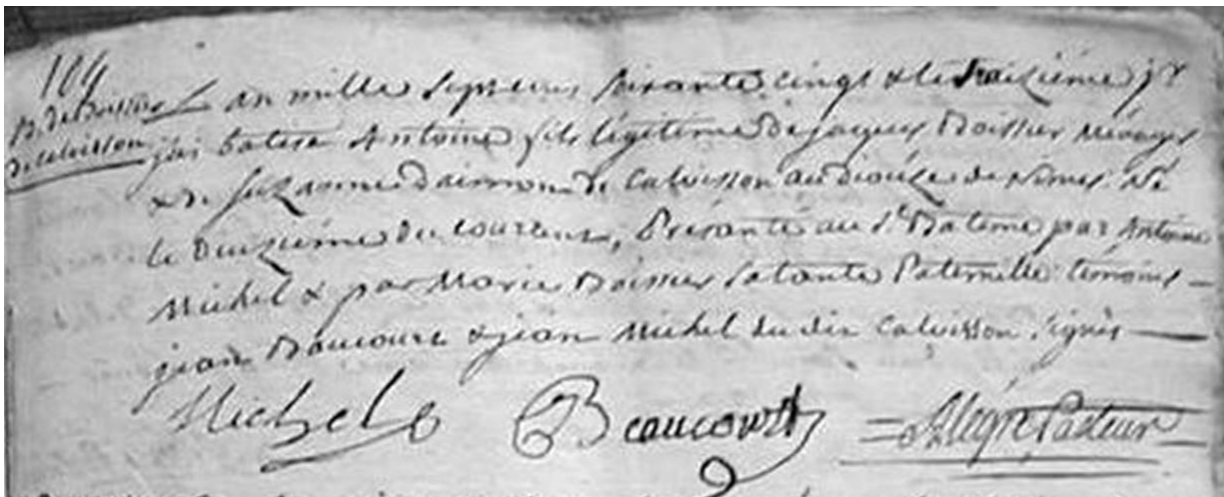 104
B. de Boissier L an mille Sept cens soixante cinq & le treizième jr
de Calvisson j'ai batisé Antoine fils légitime de jaques Boissier Ménager
& de Suzanne daimon de Calvisson au diocèze de Nimes Né
le deuzième du courant, Présanté au st Batême par Antoine
Michel & par Marie Boissier sa tante Paternelle témoins
jean Baucourt & jean Michel du dit Calvisson. signés
Michel Beaucourt Alegre Pasteur